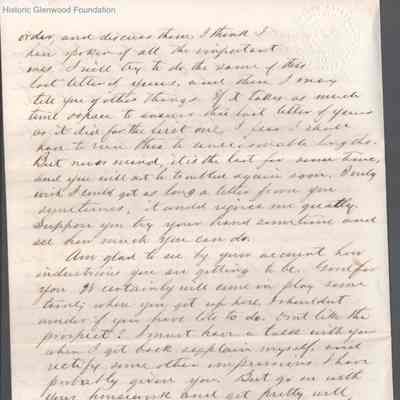 Historic Glenwood Foundation
order, and discuss them, I think I
have spoken of all the important
ones. I will try to do the same of this
last letter of yours, and then I may
tell you of other things. If it takes as much
time & space to answer this last letter of yours
as it did for the first one, I fear I shall
have to run this to unreasonable lengths.
But never mind, it is the last for some time,
and you will not be troubled again soon. I only
wish I could get as long a letter from you
sometimes, it would rejoice me greatly.
Suppose you try your hand sometime and
see how much you can do.
Am glad to see by your account how
industrious you are getting to be. Good for
you. It certainly will come in play some
time; where you get up here I shouldnt
wonder if you have lots to do. Dont like the
prospect? I must have a talk with you
when I get back & explain myself, and
rectify some other impressions I have
probably given you. But go on with
your housework and get pretty well